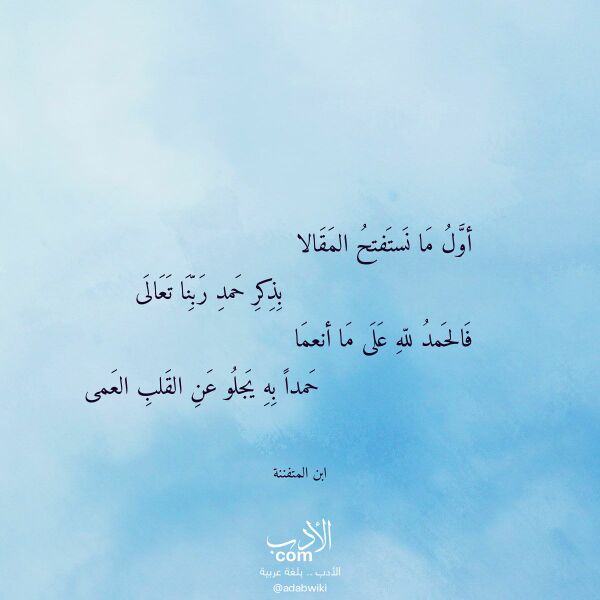 أوَّلُ مَا نَستَفتحُ المَقَالا
بِذِكرِ حَمدِ رَبِّنَا تَعَالَى
فَالحَمدُ للّهِ عَلَى مَا أنعمَا
حَمداً بِهِ يَجلُو عَنِ القَلبِ العَمى
ابن المتفننة
الأدب
com
الأدب .. بلغة عربية
@adabwiki